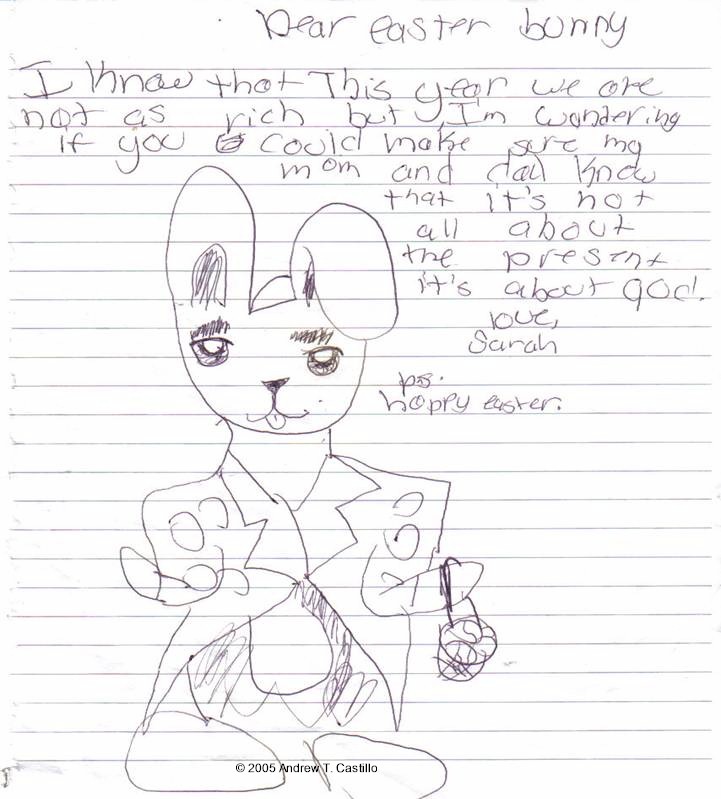 Dear easter bunny
I know that This year we are
not as rich but I'm wondering
if you could make sure my
mom and dad know
that it's not
all about
the present
it's about god.
love,
Sarah
ps.
hoppy easter.
© 2005 Andrew T. Castillo